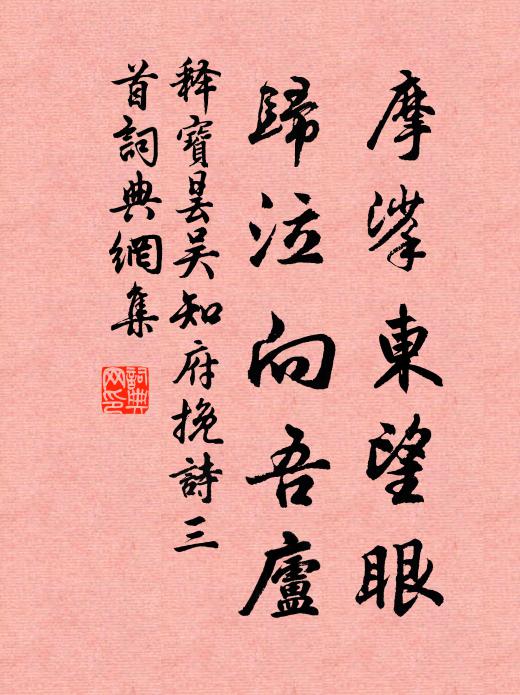 摩挲東望眼
歸泣向吾廬
释寶曇吴知府挽詩三
首詞典網集
詞典網印